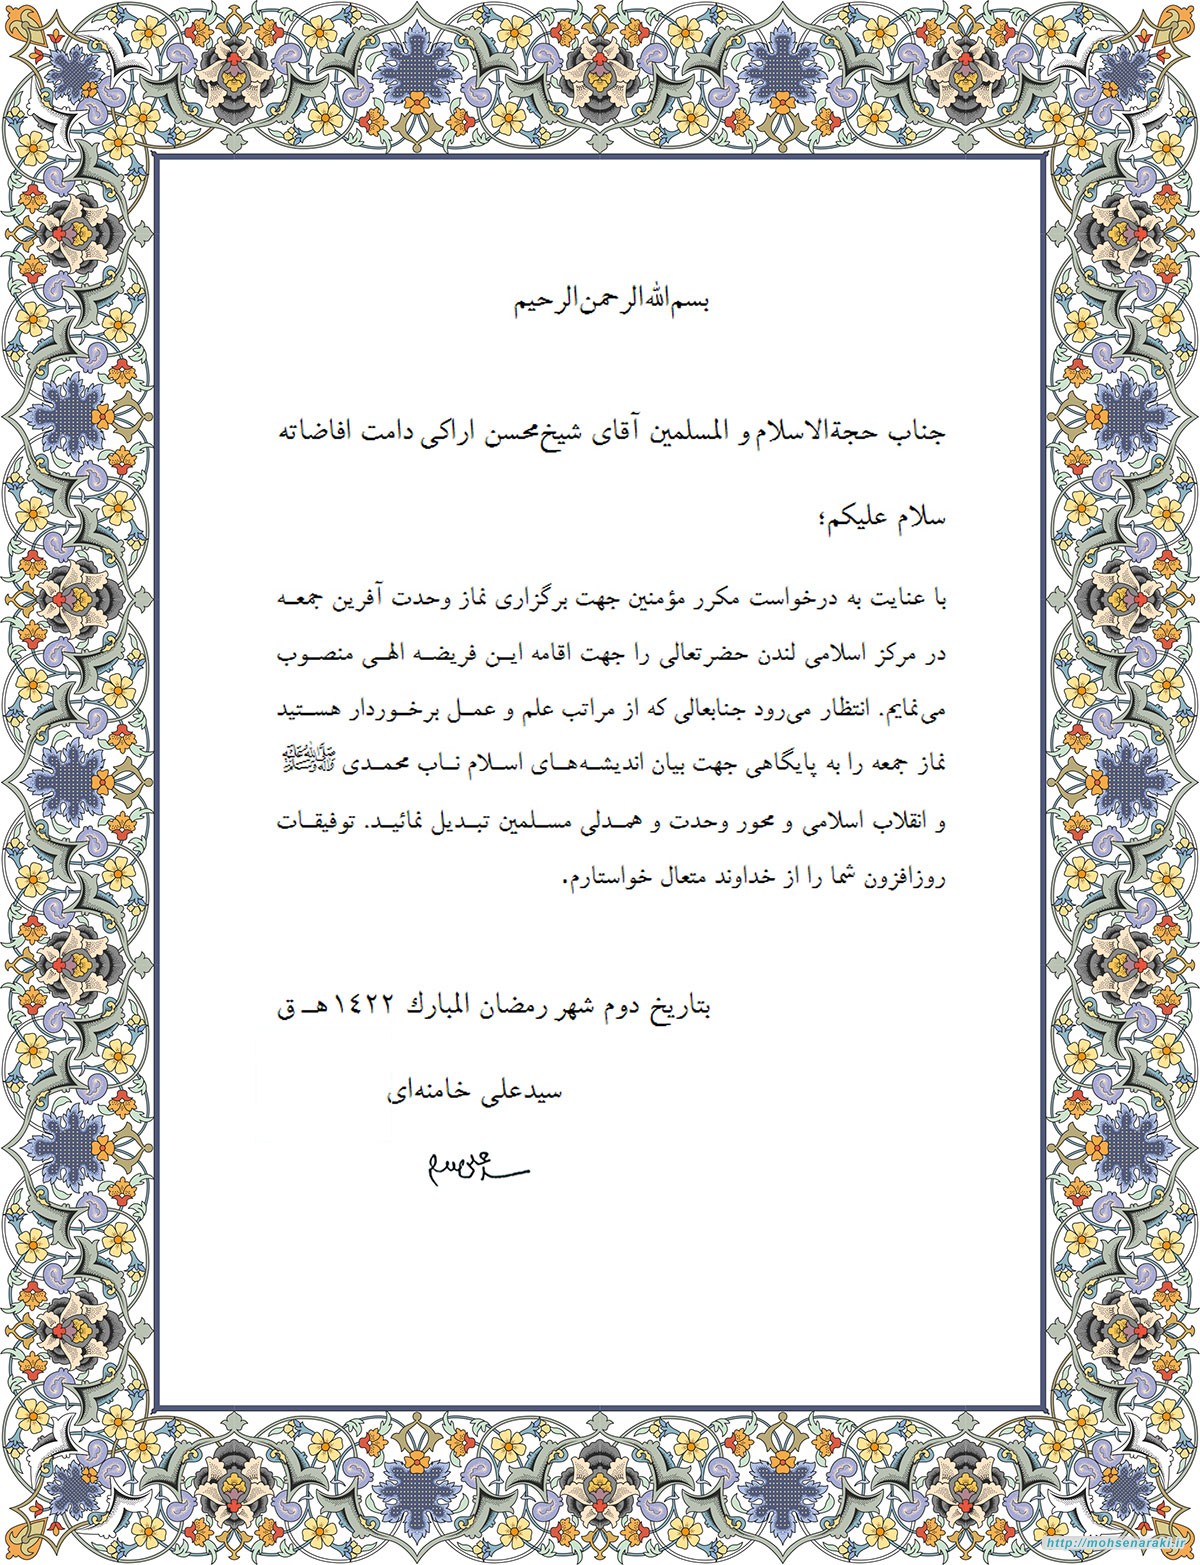 بسم‌الله‌الرحمن‌الرحیم
جناب حجةالاسلام و المسلمین آقای شیخ‌محسن اراکی دامت افاضاته
سلام علیکم؛
با عنایت به درخواست مکرر مؤمنین جهت برگزاری نماز وحدت آفرین جمعـه
در مرکز اسلامی لندن حضرتعالی را جهت اقامه ایـن فریضـه الهـی منصـوب
می‌نمایم. انتظار می‌رود جنابعالی که از مراتب علم و عمـل برخـوردار هسـتید
نماز جمعه را به پایگاهی جهت بیان اندیشـه‌هـای اسـلام نـاب محمـدی ﷺ
و انقلاب اسلامی و محور وحدت و همـدلی مسـلمین تبـدیل نمائیـد. توفیقـات
روزافزون شما را از خداوند متعال خواستارم.
بتاریخ دوم شهر رمضان المبارك ١٤٢٢هـ ق
سیدعلی خامنه‌ای
http://mohsenaraki.ir